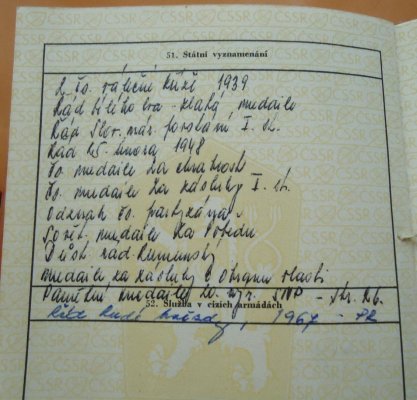 51. Státní vyznamenání
2 čs. válečný kříž 1939
Řád bílého lva - zlatá medaile
Řád Slov. nár. povstání I. tř.
Řád 25. února 1948
Čs. medaile za chrabrost
Čs. medaile za zásluhy I. st.
Odznak čs. partyzána
Sovět. medaile Za pobědu
Důst. řád Rumunský
Medaile za zásluhy o obranu vlasti
Pamětní medaile 20. výr. SNP -
52. Služba v cizích armádách
Řád Rudé hvězdy, 1967 -
ČSSR